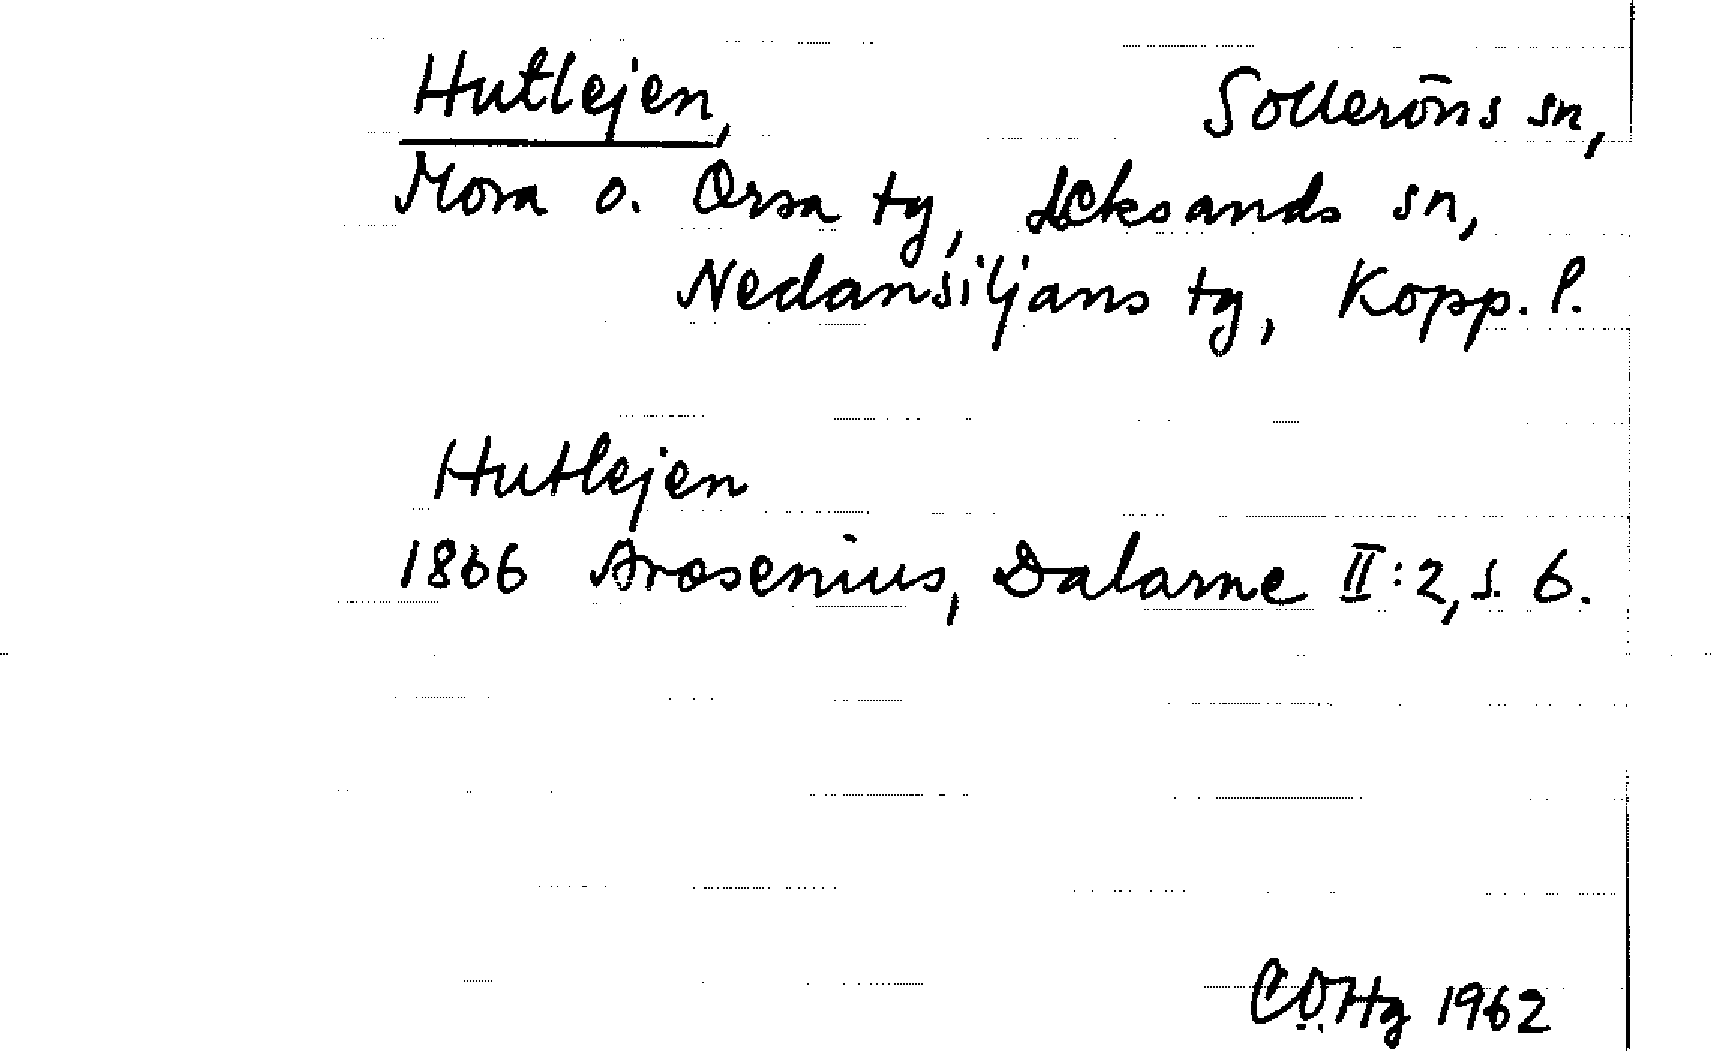 Hutlejen, Solleröns sn,
Mora o. Orsa tg, Leksands sn,
Nedansiljans tg, Kopp. l.
Hutlejen
1866 Arosenius, Dalarne II:2, s. 6.
CÖHg 1962